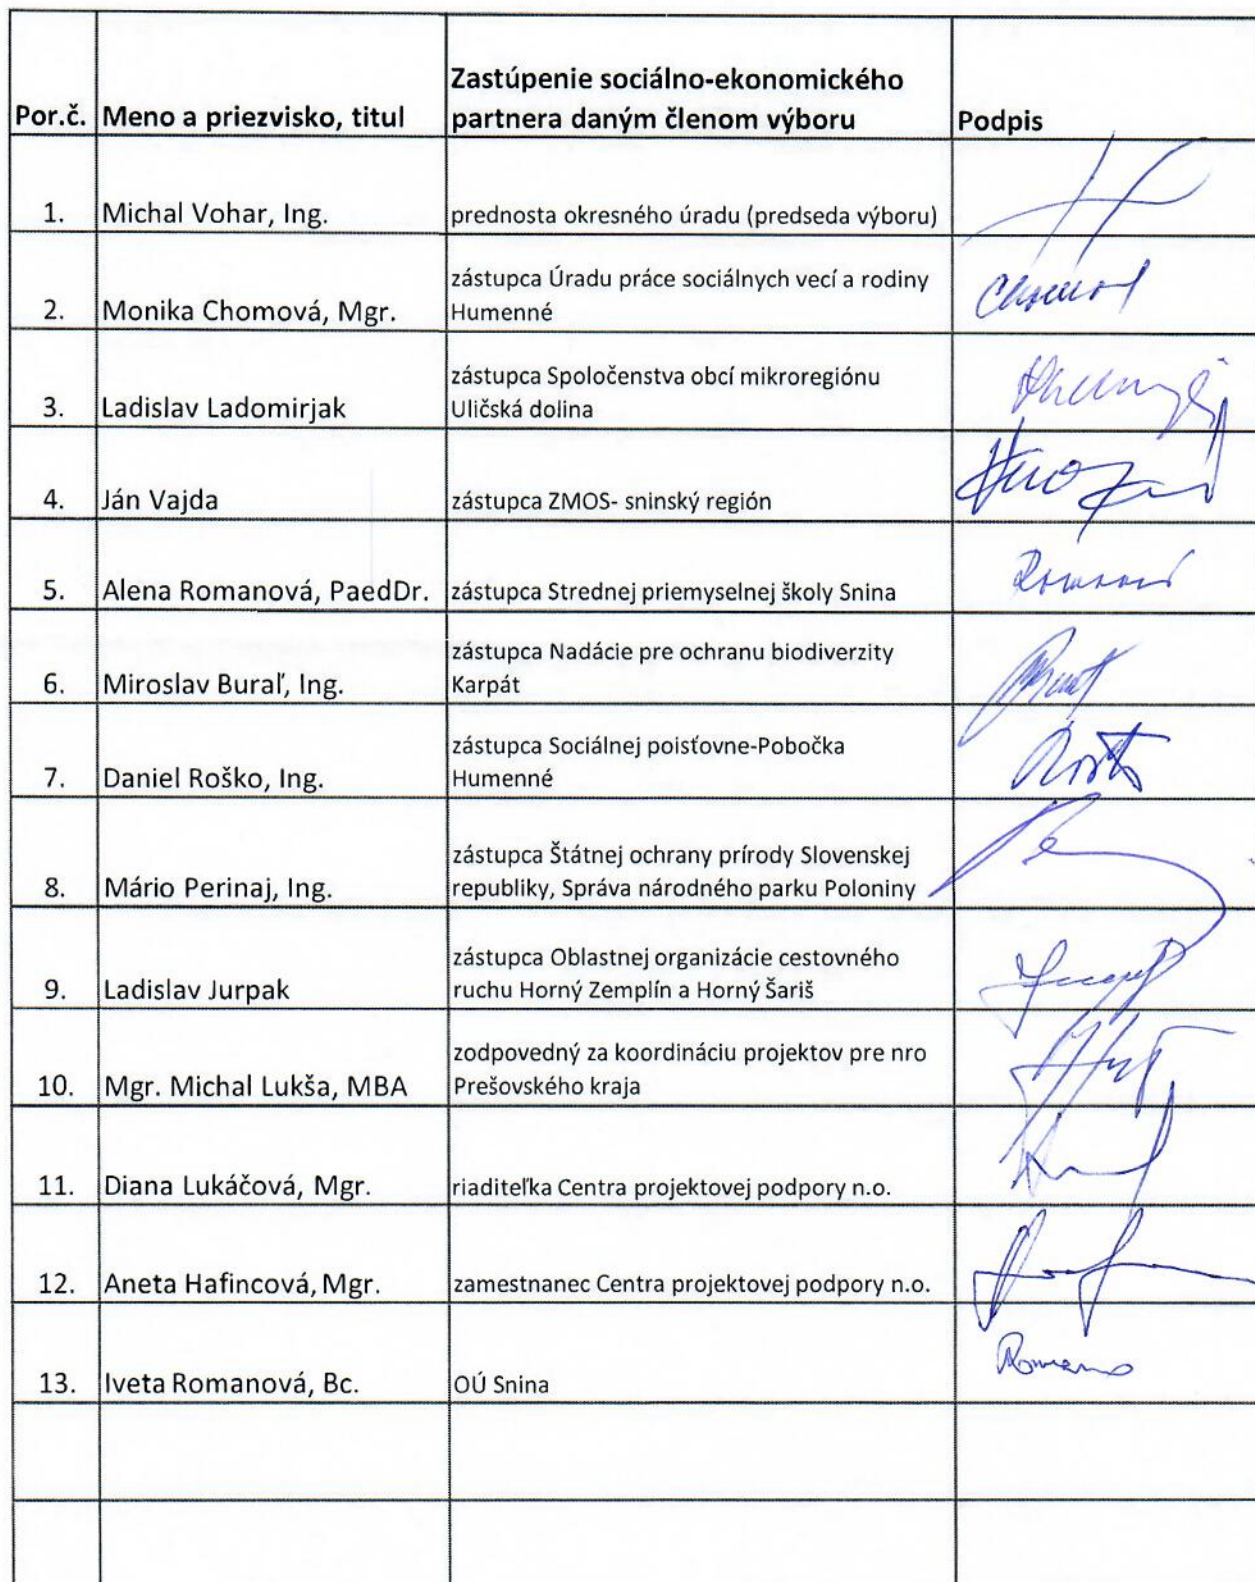 Por.č. Meno a priezvisko, titul Zastúpenie sociálno-ekonomického partnera daným členom výboru Podpis
1. Michal Vohar, Ing. prednosta okresného úradu (predseda výboru)
2. Monika Chomová, Mgr. zástupca Úradu práce sociálnych vecí a rodiny
Humenné
3. Ladislav Ladomirjak zástupca Spoločenstva obcí mikroregiónu
Uličská dolina
4. Ján Vajda zástupca ZMOS- sninský región
5. Alena Romanová, PaedDr. zástupca Strednej priemyselnej školy Snina
6. Miroslav Buraľ, Ing. zástupca Nadácie pre ochranu biodiverzity
Karpát
7. Daniel Roško, Ing. zástupca Sociálnej poisťovne-Pobočka
Humenné
8. Mário Perinaj, Ing. zástupca Štátnej ochrany prírody Slovenskej
republiky, Správa národného parku Poloniny
9. Ladislav Jurpak zástupca Oblastnej organizácie cestovného
ruchu Horný Zemplín a Horný Šariš
10. Mgr. Michal Lukša, MBA zodpovedný za koordináciu projektov pre nro
Prešovského kraja
11. Diana Lukáčová, Mgr. riaditeľka Centra projektovej podpory n.o.
12. Aneta Hafincová, Mgr. zamestnanec Centra projektovej podpory n.o.
13. Iveta Romanová, Bc. OÚ Snina